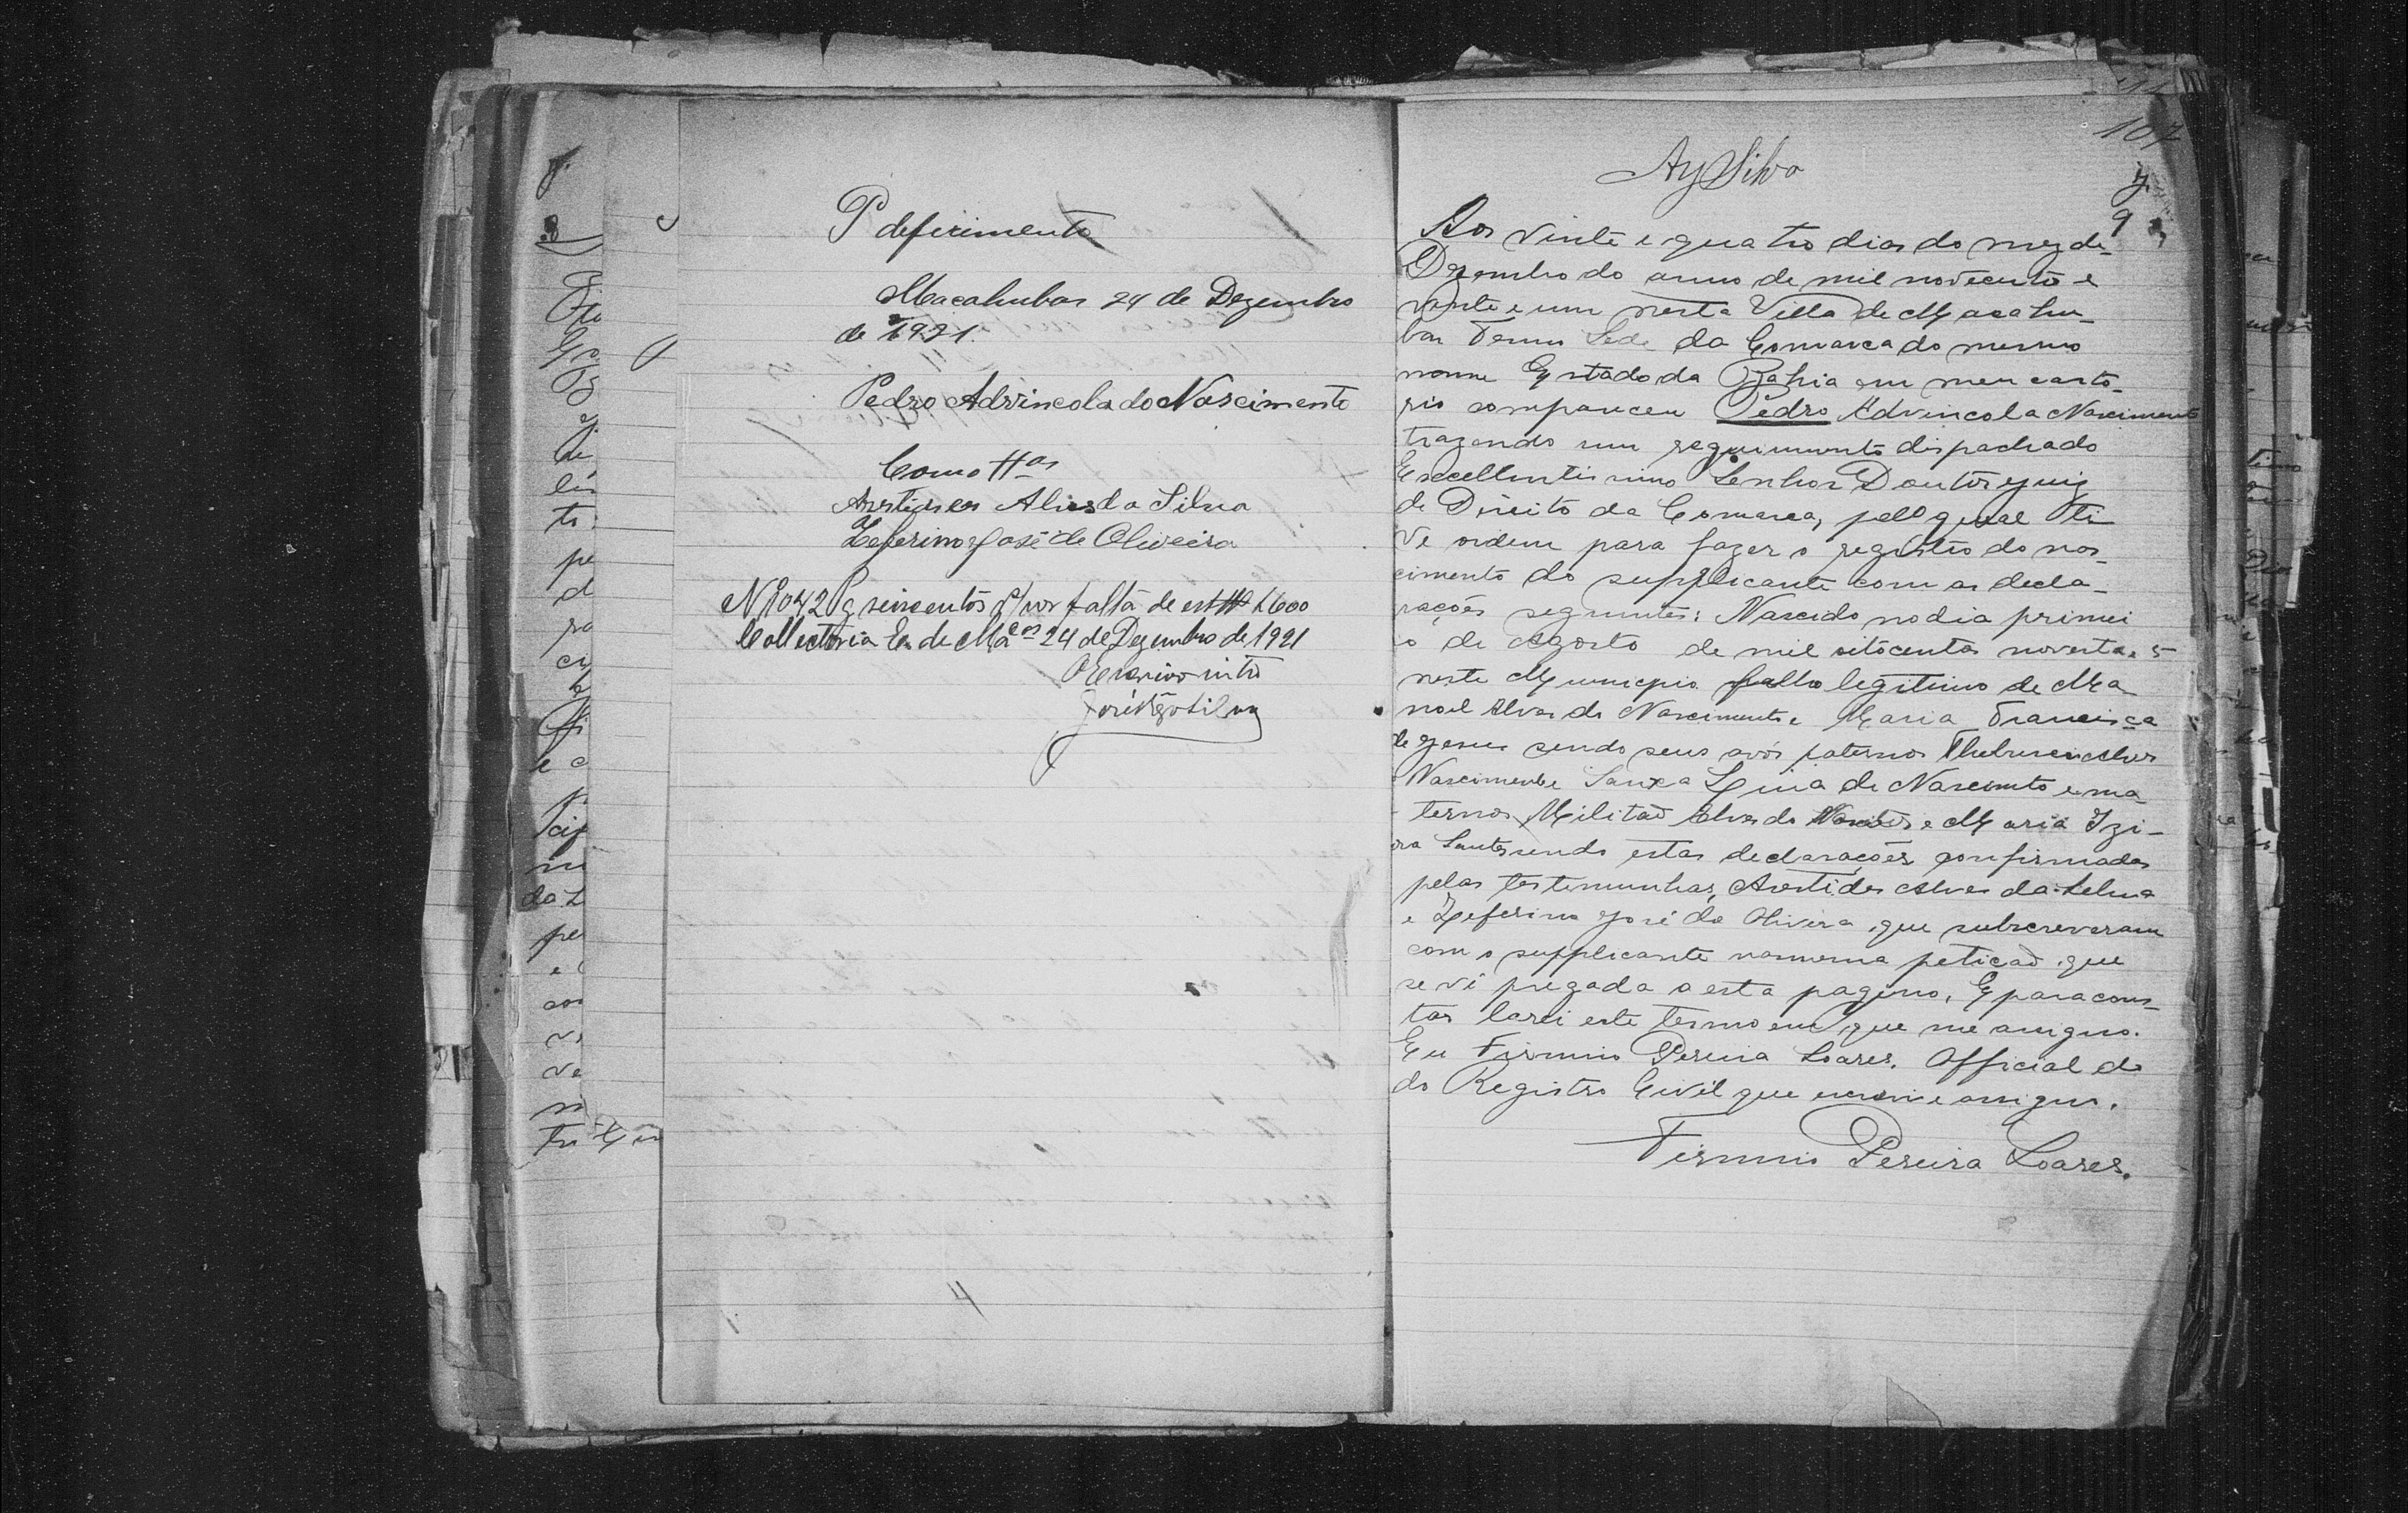 P deferimento
Macahubas 24 de Dezembro
de 1921.
Pedro Advincola do Nascimento
Como ttas
Aristides Alves da Silva
Zeferino José de Oliveira
N 1042 Pg seiscentos rs por falta de est 1600
Collectoria Es de Macas 24 de Dezembro de 1921
O Escrivão intro
José
4
107
Ay Silva
9
Aos vinte e quatro dias do mez de
Dezembro do anno de mil novecento e
vinte e um nesta Villa de Macahu-
bas Termo Sede da Comarca do mesmo
nome Estado da Bahia em meu carto-
rio compareceu Pedro Advincola Nascimento
trazendo um requirimento dispachado
Excellentissimo Senhor Doutor Juiz
de Direito da Comarca, pello qual ti
ve ordem para fazer o registro do nas-
cimento do supplicante com as decla-
rações seguintes: Nascido no dia primei
o de Agosto de mil oitocentos noventa e 5
neste Municipio filho legitimo de Ma
noel Alves do Nascimento e Maria Francisca
de Jesus sendo seus avós paternos Alves
Nascimento e Lina do Nascimento e ma-
ternos Militão Alves do e Maria Izi-
ra Santos sendo estas declarações confirmadas
pelas testemunhas, Aristides Alves da Silva
e Zeferino José de Oliveira, que subscreveram
com o supplicante na mesma petição, que
se vê pregada a esta pagina, E para cons-
tar lavrei este termo em que me assigno.
Eu Firmino Pereira Soares, Official do
do Registro Civil que escrevi e assigno.
Firmino Pereira Soares.